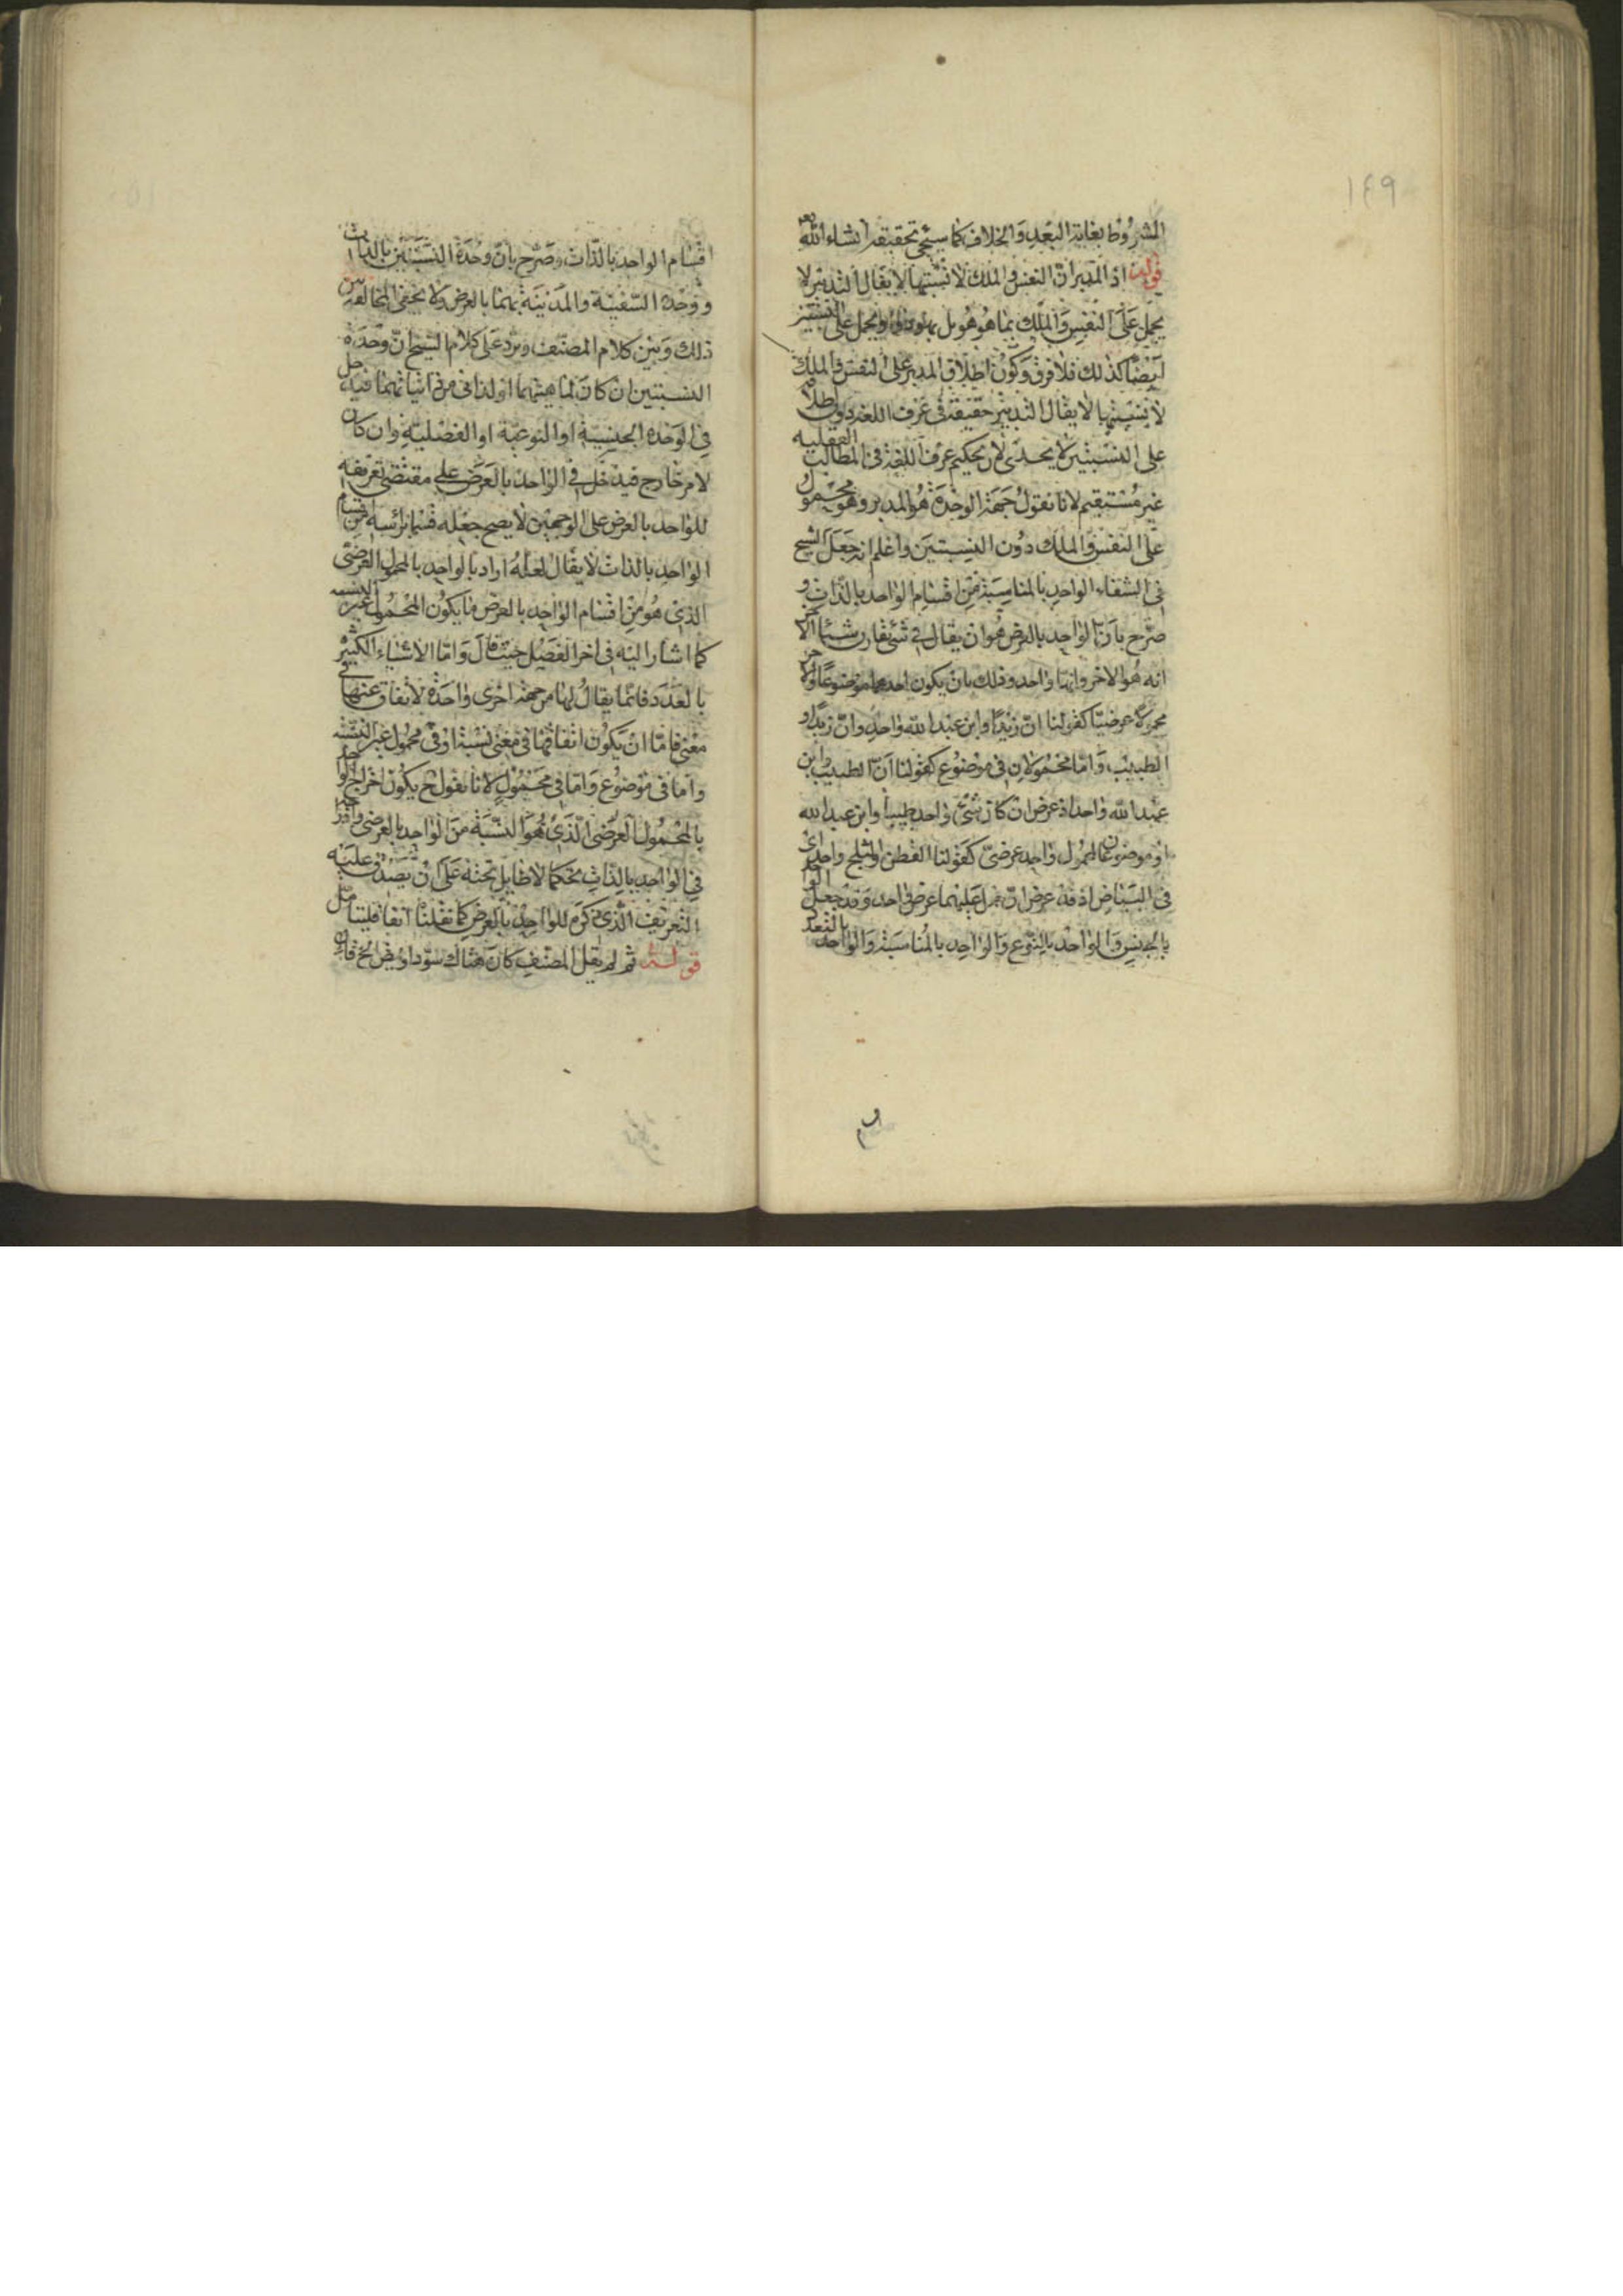 ١٤٩
المشروط بغاية البعد والخلاف كما سيجئ تحقيقه انشاء الله تعه
قوله اذ المدبران النفس والملك لا نسبتهما لا يقال التدبير لا
يحمل على النفس والملك بما هو هو بل ويحمل على النسبتين
ايضا كذلك فلا فرق وكون اطلاق المدبر على النفس والملك
لا نسبتهما لا يقال التدبير حقيقة في عرف اللغة دون اطلاقه
على النسبتين لا يجدى لان تحكيم عرف اللغة في المطالب العقلية
غير مستقيم لانا نقول جهة الوحدة هو المدبر وهو محمول
على النفس والملك دون النسبتين واعلم انه جعل الشيخ
في الشفاء الواحد بالمناسبة من اقسام الواحد بالذات و
صرح بان الواحد بالعرض هو ان يقال في شئ يقارن شيئا اخر
انه هو الاخر وانهما واحد وذلك بان يكون احدهما موضوعا والاخر
محمولا عرضيا كقولنا ان زيدا وابن عبد الله واحد وان زيدا و
الطبيب واما محمولان في موضوع كقولنا ان الطبيب وابن
عبد الله واحد اذ عرض ان كان شئ واحد طبيبا وابن عبد الله
او موضوعان لمحمول واحد عرضي كقولنا القطن والثلج واحد اى
في البياض اذ قد عرض ان حمل عليهما عرض واحد وقد جعل الواحد
بالجنس والواحد بالنوع والواحد بالمناسبة والواحد بالعدد
اقسام الواحد بالذات وصرح بان وحدة النسبتين بالذات
ووحدة السفينة والمدينة بهما بالعرض ولا يخفى المخالفة بين
ذلك وبين كلام المصنف ويرد على كلام الشيخ ان وحدة
النسبتين ان كان لماهيتهما او لذاتي من ذاتياتهما فيدخل
في الوحدة الجنسية او النوعية او الفصلية وان كان
لامر خارج فيدخل في الواحد بالعرض على مقتضى تعريفه
للواحد بالعرض على الوجهين لا يصح جعله قسما برأسه من اقسام
الواحد بالذات لا يقال لعله اراد بالواحد بالمحمول العرضي
الذي هو من اقسام الواحد بالعرض ما يكون المحمول غير النسبة
كما اشار اليه في اخر الفصل حيث قال واما الاشياء الكثيرة
بالعدد فانما يقال لها من جهة اخرى واحدة لاتفاق عنها في
معنى فاما ان يكون اتفاقها في معنى نسبة او في محمول غير النسبة
واما في موضوع واما في محمول لانا نقول ح يكون اخراج الواحد
بالمحمول العرضي الذي هو النسبة من الواحد بالعرض وادراجه
في الواحد بالذات تحكما لا طايل تحته على ان يصدق عليه
التعريف الذي ذكره للواحد بالعرض كما نقلنا انفا فليتامل
قوله ثم لم يقل المصنف كان هناك الخ فان